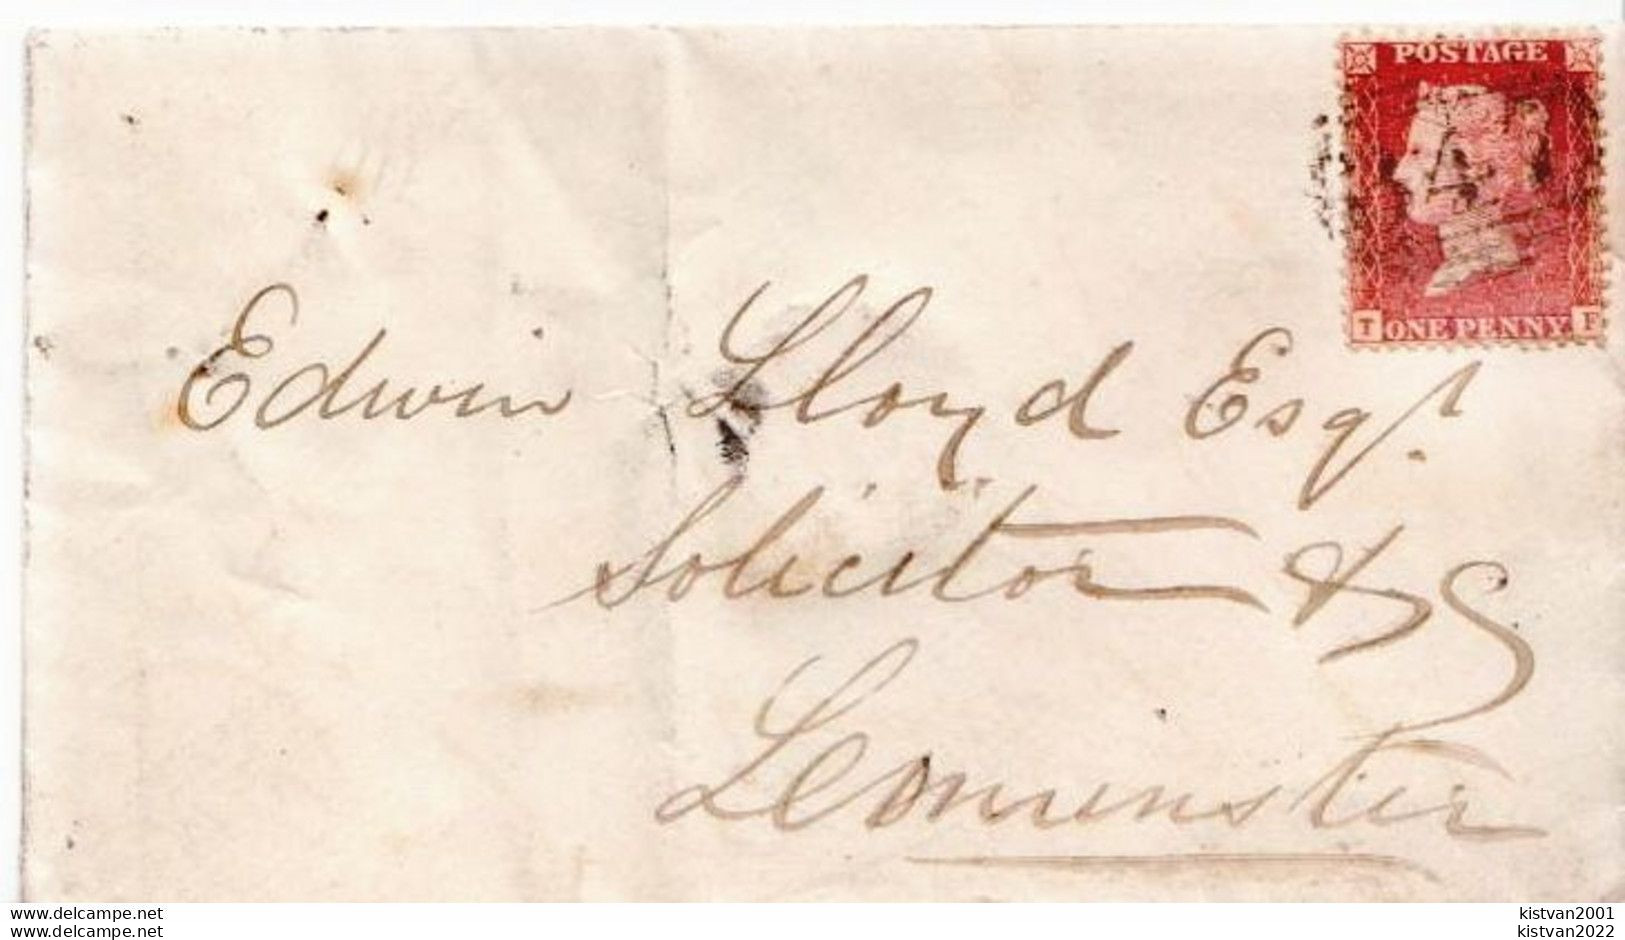 POSTAGE
4
T ONE PENNY F
Edwin Lloyd Esqr.
Solicitor &c
Leominster
delcampe.net kistvan2001
delcampe.net kistvan2022